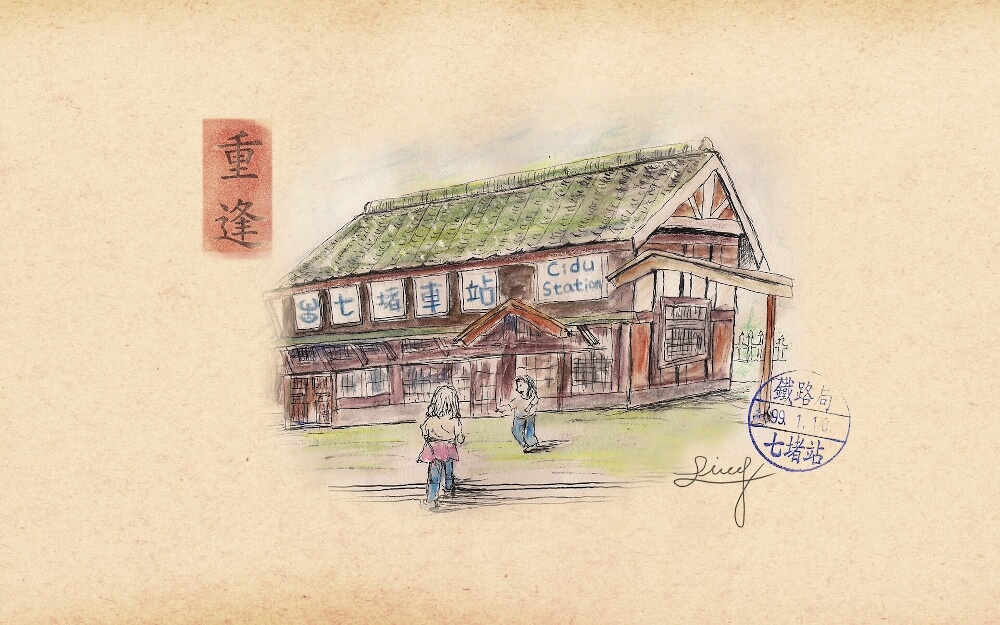 重逢
七堵車站
Cidu
Station
鐵路局
99.1.10
七堵站